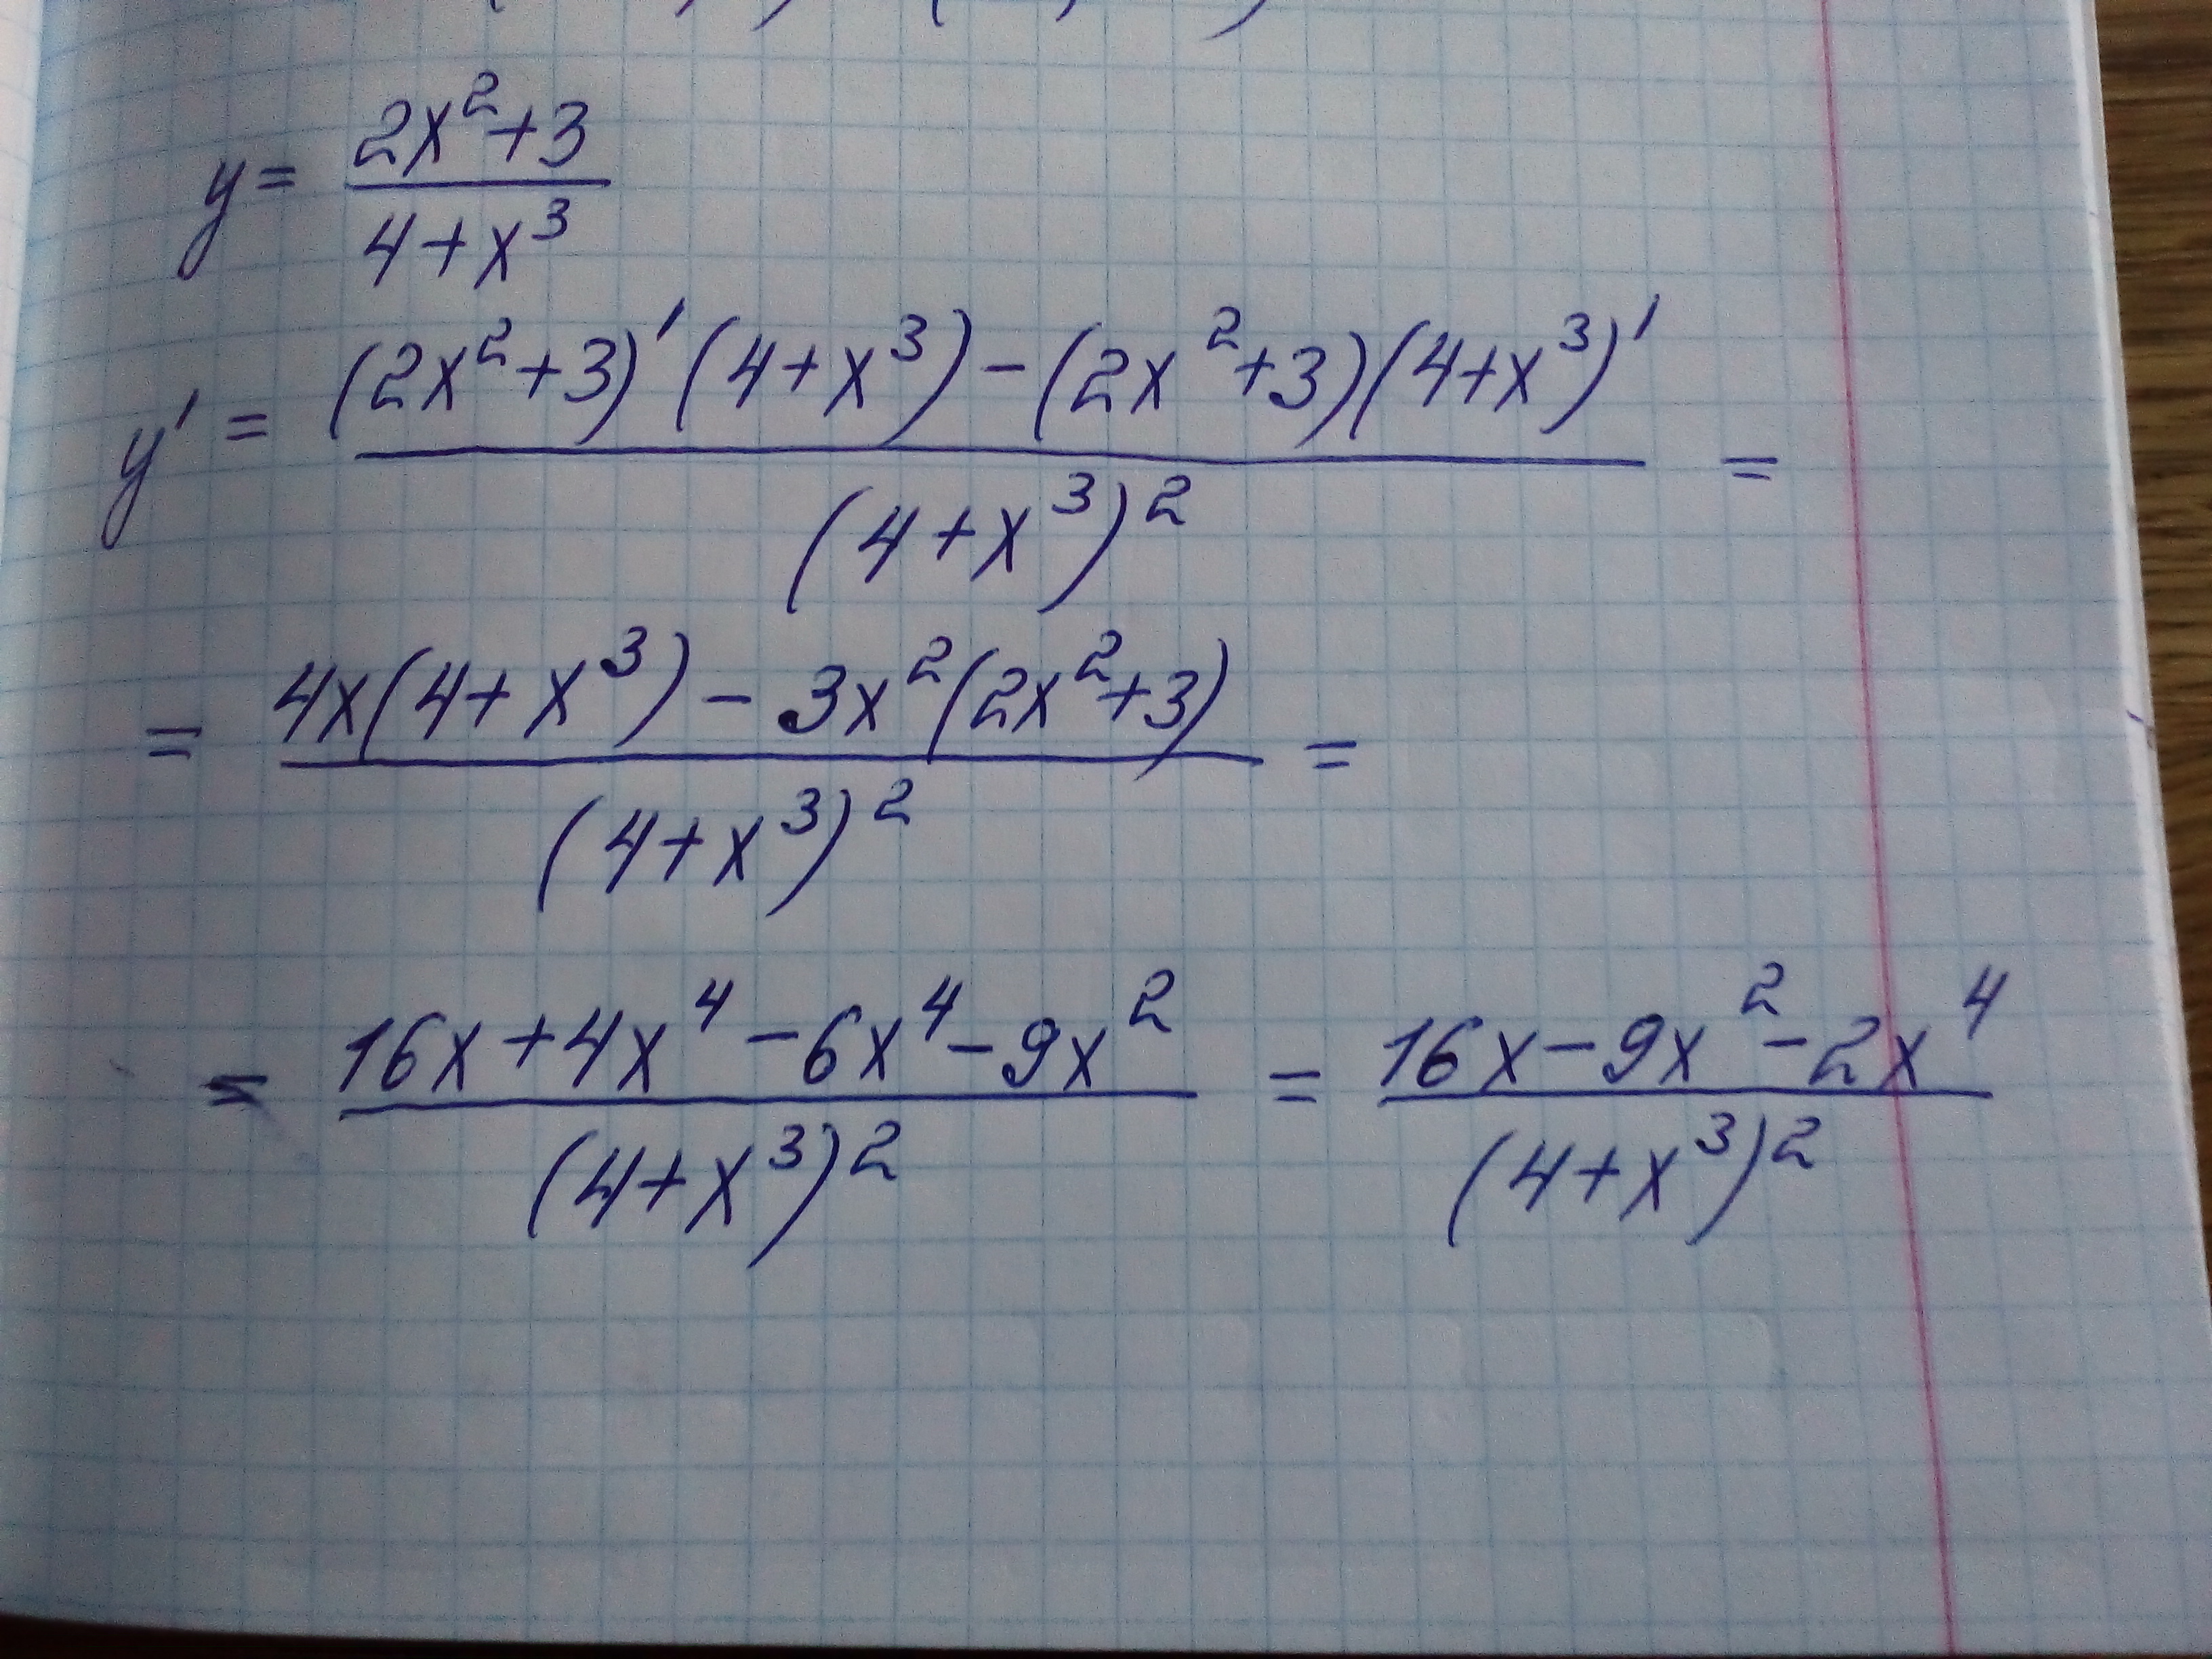 y = (2x²+3)/(4+x³)
y' = ((2x²+3)'(4+x³)-(2x²+3)(4+x³)')/(4+x³)² =
= (4x(4+x³)-3x²(2x²+3))/(4+x³)² =
= (16x+4x⁴-6x⁴-9x²)/(4+x³)² = (16x-9x²-2x⁴)/(4+x³)²